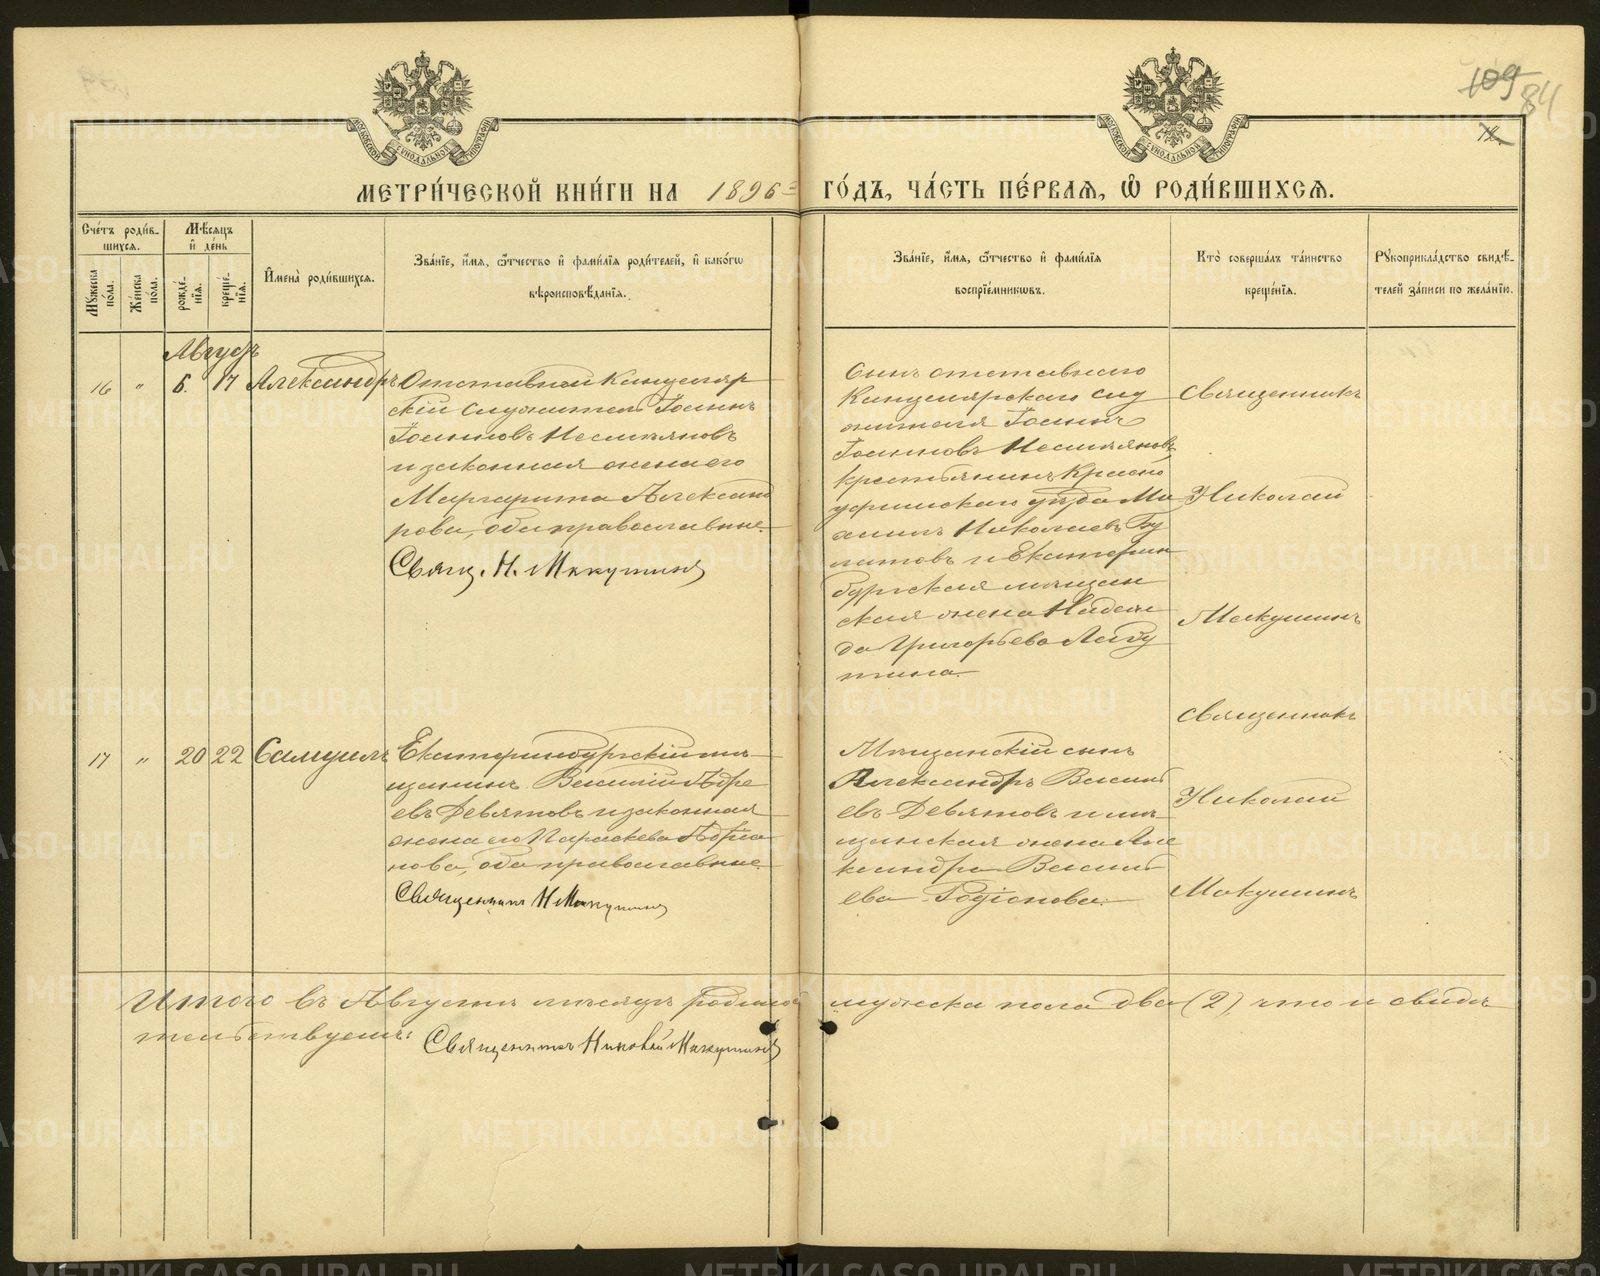 109
84
МОСКОВСКОЙ СѴНОДАЛЬНОЙ ТИПОГРАФІИ
МОСКОВСКОЙ СѴНОДАЛЬНОЙ ТИПОГРАФІИ
МЕТРИ́ЧЕСКОЙ КНИ́ГИ НА 1896 ГО́ДЪ, ЧА́СТЬ ПЕ́РВАЯ, Ѡ҆ РОДИ́ВШИХСЯ.
Сче́тъ роди́в-
шихся.
Мѣ́сяцъ
и҆ де́нь
Мꙋ́жеска
пола.
Же́нска
пола.
рожде́-
нїя.
креще́-
нїя.
И҆мена̀ роди́вшихся.
Зва́нїе, и҆́мя, ѻ҆́тчество и҆ фами́лїя роди́телей, и҆ како́гѡ
вѣроисповѣ́данїя.
Зва́нїе, и҆́мя, ѻ҆́тчество и҆ фами́лїя
воспрїе́мниковъ.
Кто̀ соверша́лъ та́инство
креще́нїя.
Рꙋкоприкла́дство свидѣ́-
телей за́писи по жела́нїю.
Августъ
16 " 6. 17 Александръ
Отставной Канцеляр
скій служитель Іоаннъ
Іоанновъ Несмѣяновъ
и законная жена его
Маргарита Александ
рова, оба православные.
Свящ. Н. Макушинъ
Сынъ отставнаго
Канцелярскаго слу
жителя Іоаннъ
Іоанновъ Несмѣяновъ
крестьянинъ Красно
уфимскаго уѣзда Ми
хаилъ Николаевъ Бу
латовъ и Екатерин
бургская мѣщан
ская жена Надеж
да Григорьева
Священникъ
Николай
Макушинъ
17 " 20 22 Самуилъ
Екатеринбургскій мѣ
щанинъ Василій Андре
евъ Девятовъ и законная
жена его Параскева
нова, оба православные.
Священникъ Н Макушинъ
Мѣщанскій сынъ
Александръ Василь
евъ Девятовъ и мѣ
щанская жена Але
ксандра Василь
ева Родіонова.
Священникъ
Николай
Макушинъ
Итого въ Августѣ мѣсяцѣ родилось мужеска пола два (2), что и свидѣ
тельствуемъ:
Священникъ Николай Макушинъ
METRIKI.GASO-URAL.RU